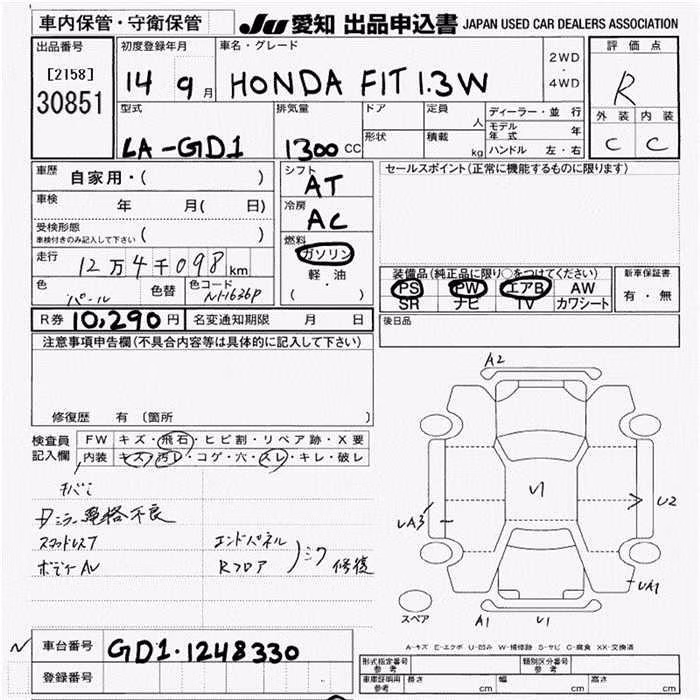 車内保管・守衛保管
JU 愛知 出品申込書 JAPAN USED CAR DEALERS ASSOCIATION
出品番号
[2158]
30851
初度登録年月
14 9月
車名・グレード
HONDA FIT 1.3W
2WD
・
4WD
評価点
R
外装 内装
C C
型式
LA-GD1
排気量
1300 CC
ドア
形状
定員
人
積載
kg
ディーラー・並 行
モデル年式 年
ハンドル 左・右
車歴
自家用・( )
車検
年 月( 日)
受検形態
車検付きのみ記入して下さい ( )
走行
12万4千098 km
色
パール
色替
色コード
NH636P
シフト
AT
冷房
AC
燃料
ガソリン
軽 油
( ・ )
セールスポイント(正常に機能するものに限ります)
装備品(純正品に限り○をつけてください)
PS PW エアB AW
SR ナビ TV カワシート
新車保証書
有・無
R券 10,290 円 名変通知期限 月 日
後日品
注意事項申告欄(不具合内容等は具体的に記入して下さい)
修復歴 有 〔箇所
検査員
記入欄
FW キズ・飛石・ヒビ割・リペア跡・X要
内装 キズ・汚レ・コゲ・穴・スレ・キレ・破レ
格不良
スタッドレス
エンドパネル
ボディAU
Rフロア
修復
A2
U1
UA3
U2
UA1
スペア
A1 U1
A-キズ E-エクボ U-凹み W-補修跡 S-サビ C-腐食 XX-交換済
車台番号
GD1・1248330
登録番号
形式指定番号
参考
類別区分番号
参考
車庫証明用
参考
長さ cm 幅 cm 高さ cm